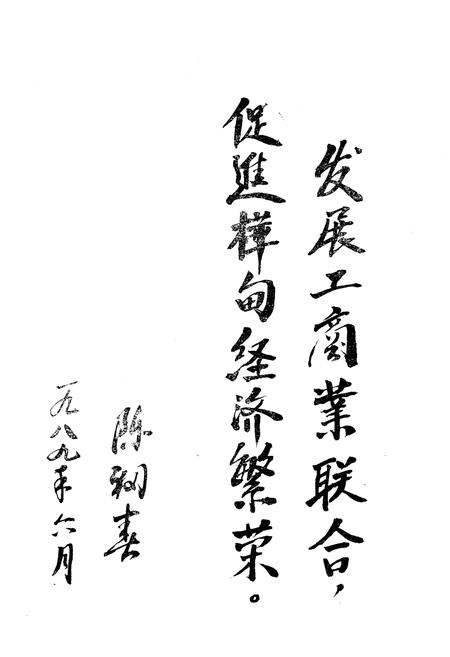 发展工商業联合，
促進樺甸経济繁荣。
陈春
一九八九年六月